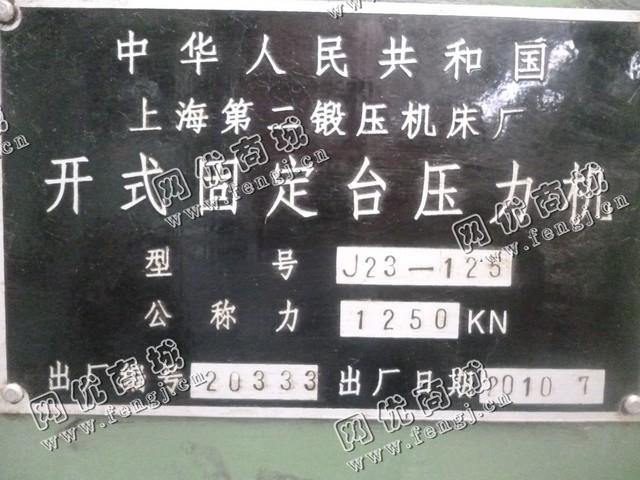 中华人民共和国
上海第二锻压机床厂
开式固定台压力机
型号 J23-125
公称力 1250 KN
出厂编号 20333 出厂日期 2010 7
网优商城
www.fengj.cn
网优商城
www.fengj.cn
网优商城
www.fengj.cn
网优商城
www.fengj.cn
网优商城
www.fengj.cn